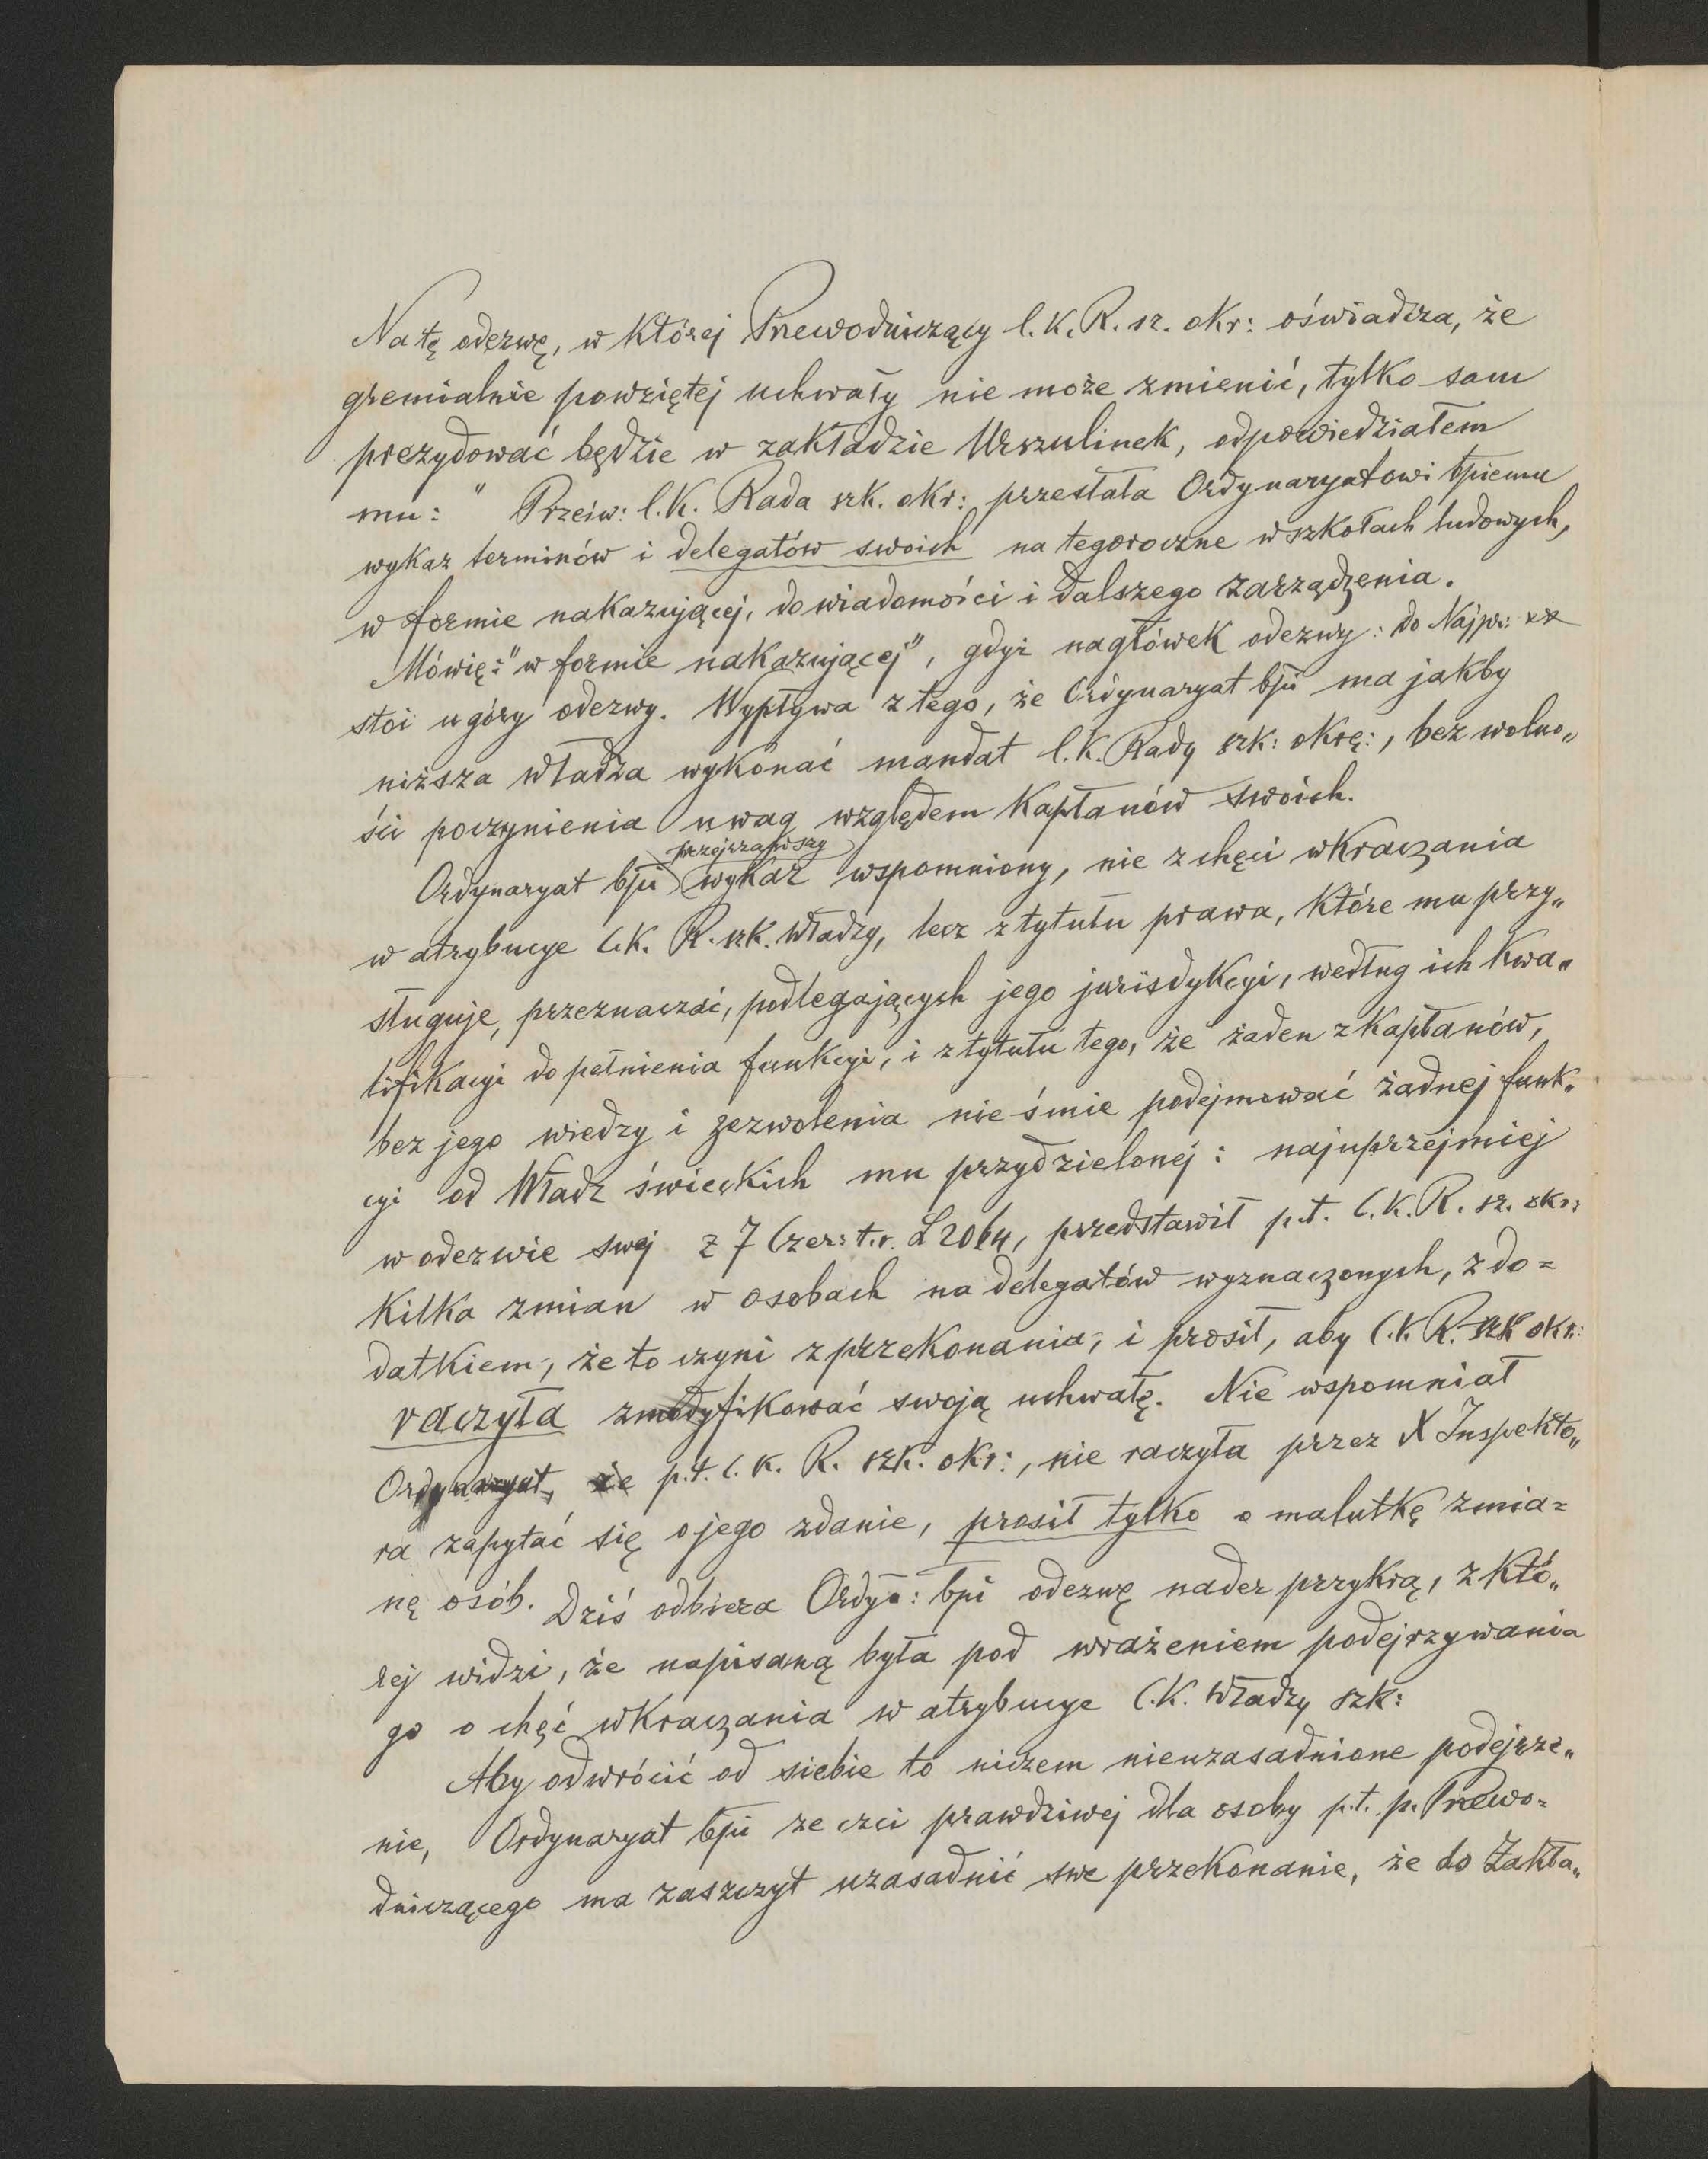 Na tę odezwę, w której Przewodniczący C. K. R. sz. okr: oświadcza, że
gremialnie powziętej uchwały nie może zmienić, tylko sam
prezydować będzie w zakładzie Urszulinek, odpowiedziałem
mu: " Prześw: C. K. Rada szk. okr: przesłała Ordynaryatowi bpiemu
wykaz terminów i delegatów swoich na tegoroczne w szkołach ludowych,
w formie nakazującej, do wiadomości i dalszego zarządzenia.
Mówię: "w formie nakazującej", gdyż nagłówek odezwy: do Najprz: xx
stoi u góry odezwy. Wypływa z tego, że Ordynaryat bpi ma jakby
niższa władza wykonać mandat C. K. Rady szk: okrę:, bez wolno„
ści poczynienia uwag względem Kapłanów swoich.
przejrzawszy
Ordynaryat bpi wykaz wspomniony, nie z chęci wkraczania
w atrybucye C. K. R. szk. Władzy, lecz z tytułu prawa, które mu przy„
sługuje, przeznaczać, podlegających jego jurisdykcyi, według ich kwa„
lifikacyi do pełnienia funkcyi, i z tytułu tego, że żaden z Kapłanów,
bez jego wiedzy i zezwolenia nie śmie podejmować żadnej funk„
cyi od Władz świeckich mu przydzielonej: najuprzejmiej
w odezwie swej z 7 Czer: t. r. L 2064, przedstawił p. t. C. K. R. sz. okr:
kilka zmian w osobach na delegatów wyznaczonych, z do=
datkiem, że to czyni z przekonania, i prosił, aby C. K. R. szk okr:
raczyła zmodyfikować swoją uchwałę. Nie wspomniał
Ordynaryat, że p. t. C. K. R. szk. okr:, nie raczyła przez X Inspekto„
ra zapytać się o jego zdanie, prosił tylko o malutkę zmia=
nę osób. Dziś odbiera Ordyn: bpi odezwę nader przykrą, z któ„
rej widzi, że napisaną była pod wrażeniem podejrzywania
go o chęć wkraczania w atrybucye C. K. Władzy szk:
Aby odwrócić od siebie to niczem nieuzasadnione podejrze„
nie, Ordynaryat bpi ze czci prawdziwej dla osoby p. t. p. Przewo=
dniczącego ma zaszczyt uzasadnić swe przekonanie, że do Zakła„